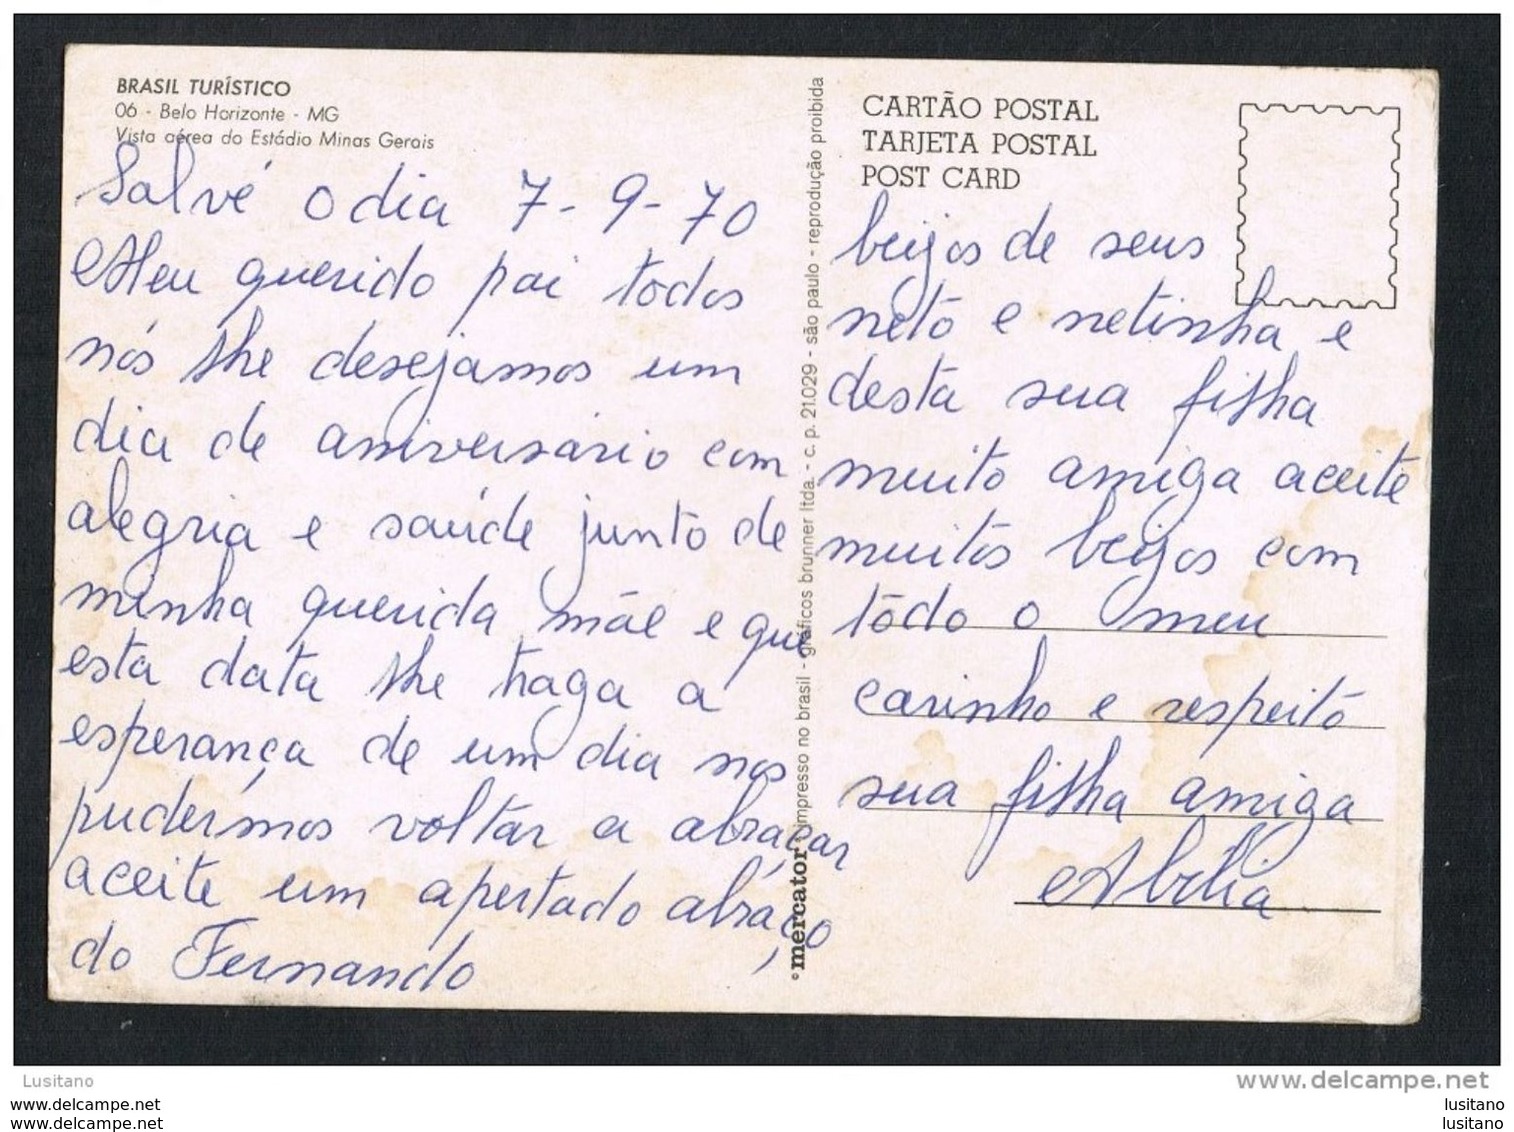 BRASIL TURÍSTICO
06 - Belo Horizonte - MG
Vista aérea do Estádio Minas Gerais
Salvé o dia 7-9-70
Meu querido pai todos
nós lhe desejamos um
dia de aniversário com
alegria e saúde junto de
minha querida mãe e que
esta data lhe traga a
esperança de um dia nos
pudermos voltar a abraçar
aceite um apertado abraço
do Fernando
impresso no brasil - gráficos brunner ltda. - c. p. 21.029 - são paulo - reprodução proibida
mercator
CARTÃO POSTAL
TARJETA POSTAL
POST CARD
beijos de seus
neto e netinha e
desta sua filha
muito amiga aceite
muitos beijos com
tôdo o meu
carinho e respeito
sua filha amiga
Abilia
Lusitano
www.delcampe.net
www.delcampe.com
www.delcampe.com
lusitano
lusitano